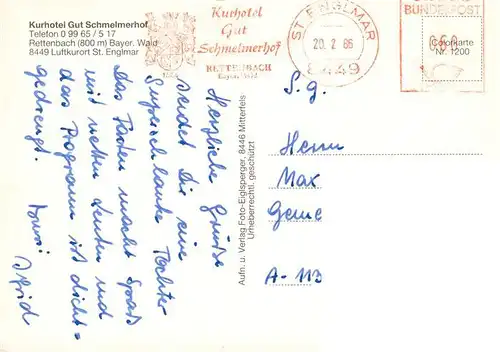 Kurhotel Gut Schmelmerhof
Telefon 0 99 65 / 5 17
Rettenbach (800 m) Bayer. Wald
8449 Luftkurort St. Englmar
Kurhotel
Gut
Schmelmerhof
RETTENBACH
Bayer. Wald
ST. ENGLMAR
20. 2. 86
8449
BUNDESPOST
060
Colorkarte
Nr. 1200
Herzliche Grüße
sendet Dir eine
superschlanke Tochter
Das Fasten macht Spaß
mit netten Leuten und
das Programm ist dicht=
gedrängt.
Aufn. u. Verlag Foto-Eiglsperger, 8446 Mitterfels
Urheberrechtl. geschützt
S. g.
Herrn
Max
A-113